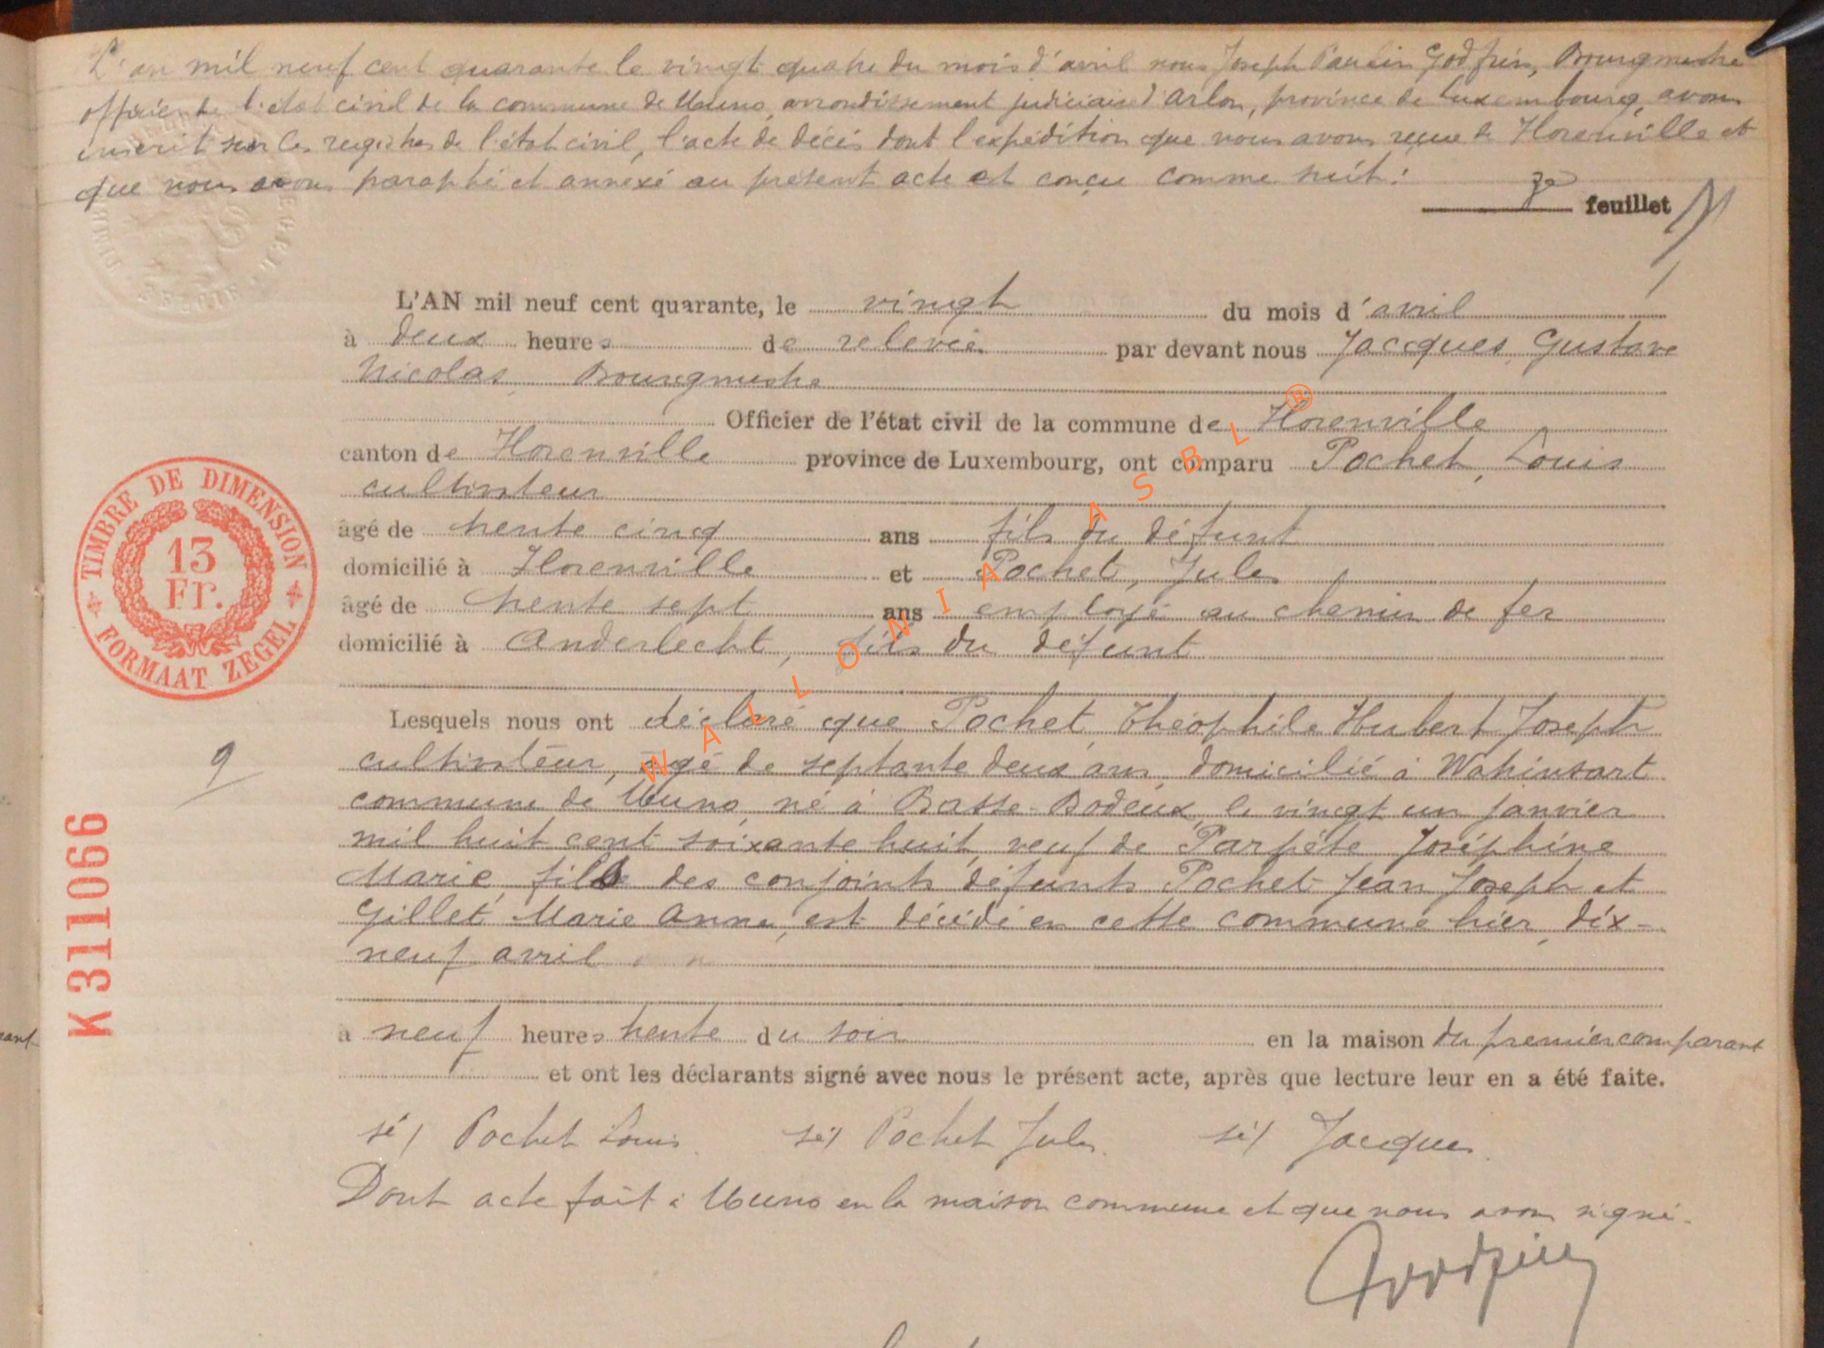 L'an mil neuf cent quarante le vingt quatre du mois d'avril nous Joseph Paulin Godfrin, Bourgmestre
officier de l'état civil de la commune de Muno, arrondissement judiciaire d'Arlon, province de Luxembourg, avons
inscrit sur les registres de l'état civil, l'acte de décès dont l'expédition que nous avons reçue de Florenville et
que nous avons paraphé et annexé au présent acte est conçu comme suit :
feuillet
L'AN mil neuf cent quarante, le vingt du mois d'avril
à deux heures de relevée par devant nous Jacques, Gustave
Nicolas, Bourgmestre
Officier de l'état civil de la commune de Florenville
canton de Florenville province de Luxembourg, ont comparu Pochet, Louis
cultivateur
âgé de trente cinq ans fils du défunt
domicilié à Florenville et Pochet, Jules
âgé de trente sept ans employé au chemin de fer
domicilié à Anderlecht, fils du défunt
Lesquels nous ont déclaré que Pochet, Théophile Hubert Joseph
cultivateur, âgé de septante deux ans, domicilié à Watrinsart
commune de Muno, né à Basse-Bodeux, le vingt un janvier
mil huit cent soixante huit, veuf de Parfête Joséphine
Marie, fils des conjoints défunts Pochet Jean Joseph et
Gillet Marie Anne, est décédé en cette commune hier, dix-
neuf avril
à neuf heures trente du soir en la maison du premier comparant
et ont les déclarants signé avec nous le présent acte, après que lecture leur en a été faite.
sé/ Pochet Louis. sé/ Pochet Jules. sé/ Jacques.
Dont acte fait à Muno en la maison commune et que nous avons signé.
Godfrin
TIMBRE DE DIMENSION
13
Fr.
FORMAAT ZEGEL
9
K311066
WALLONIA ASBL ®